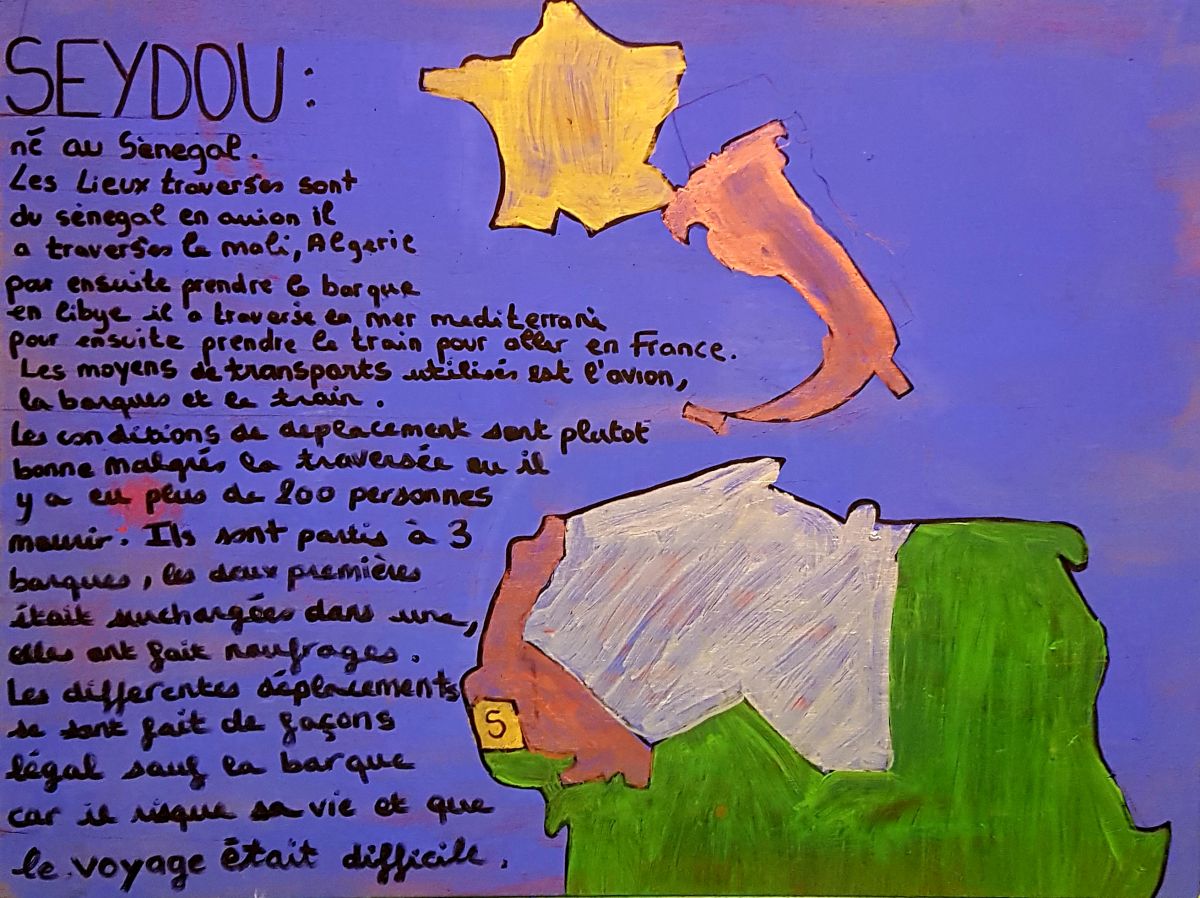 SEYDOU :
né au Sènegal.
Les Lieux traversés sont
du sènegal en avion il
a traversés le mali, Algerie
par ensuite prendre la barque
en libye il a traverse la mer mediterrané
pour ensuite prendre le train pour aller en France.
Les moyens de transports utilisés est l'avion,
la barques et le train.
Les conditions de deplacement sont plutot
bonne malgrés la traversée ou il
y a eu plus de 200 personnes
mourir. Ils sont partis à 3
barques, les deux premières
était surchargées dans une,
elles ont fait naufrages.
Les differentes déplacements
se sont fait de façons
légal sauf la barque
car il risque sa vie et que
le voyage était difficile.
S